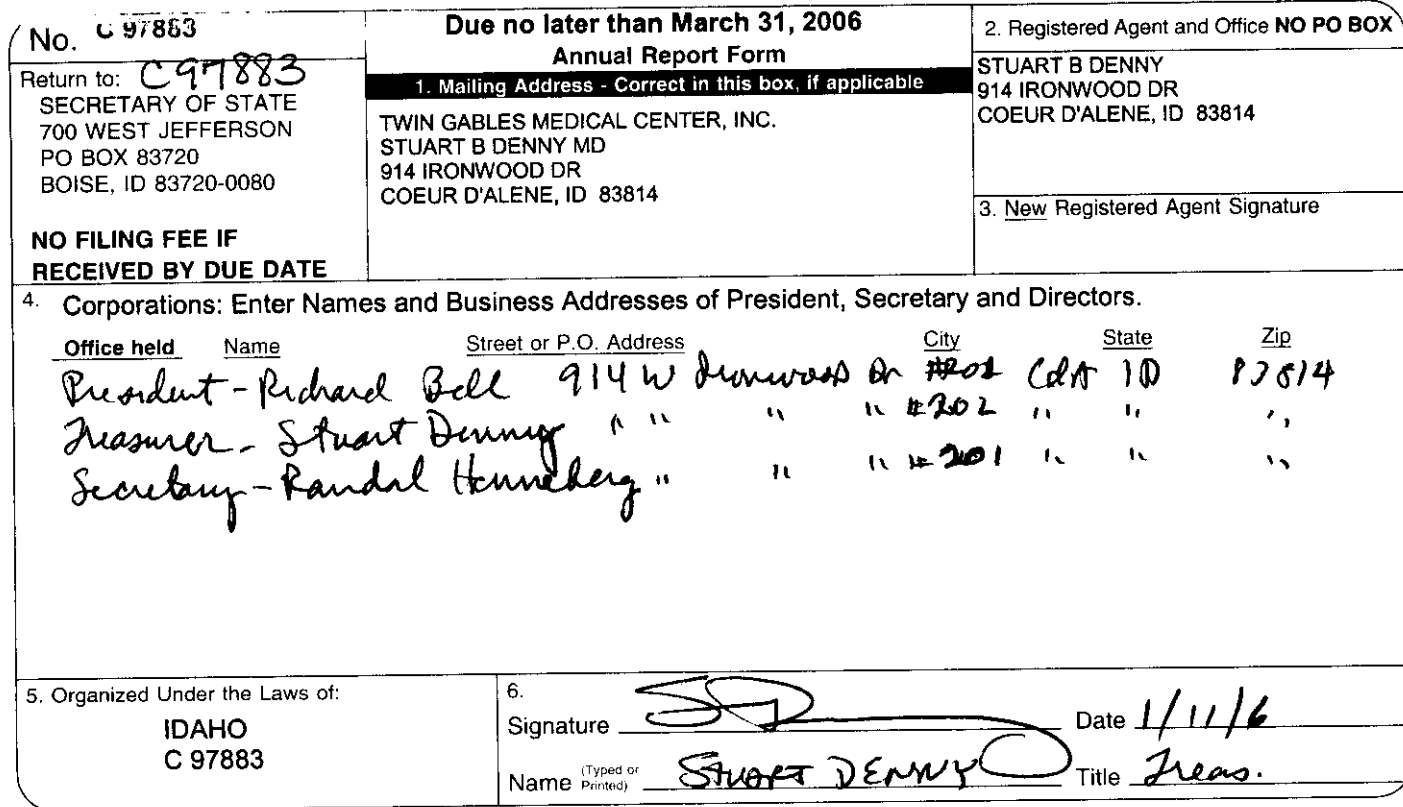 No. C 97883
Return to: C97883
SECRETARY OF STATE
700 WEST JEFFERSON
PO BOX 83720
BOISE, ID 83720-0080
NO FILING FEE IF
RECEIVED BY DUE DATE
Due no later than March 31, 2006
Annual Report Form
1. Mailing Address - Correct in this box, if applicable
TWIN GABLES MEDICAL CENTER, INC.
STUART B DENNY MD
914 IRONWOOD DR
COEUR D'ALENE, ID 83814
2. Registered Agent and Office NO PO BOX
STUART B DENNY
914 IRONWOOD DR
COEUR D'ALENE, ID 83814
3. New Registered Agent Signature
4. Corporations: Enter Names and Business Addresses of President, Secretary and Directors.
Office held Name Street or P.O. Address City State Zip
President - Richard Bell 914 W Ironwood Dr CdA ID 83814
Treasurer - Stuart Denny " " " " #202 " " "
Secretary - Randal Henneberg " " " #201 " " "
5. Organized Under the Laws of:
IDAHO
C 97883
6.
Signature Date 1/11/6
Name (Typed or Printed) STUART DENNY Title Treas.